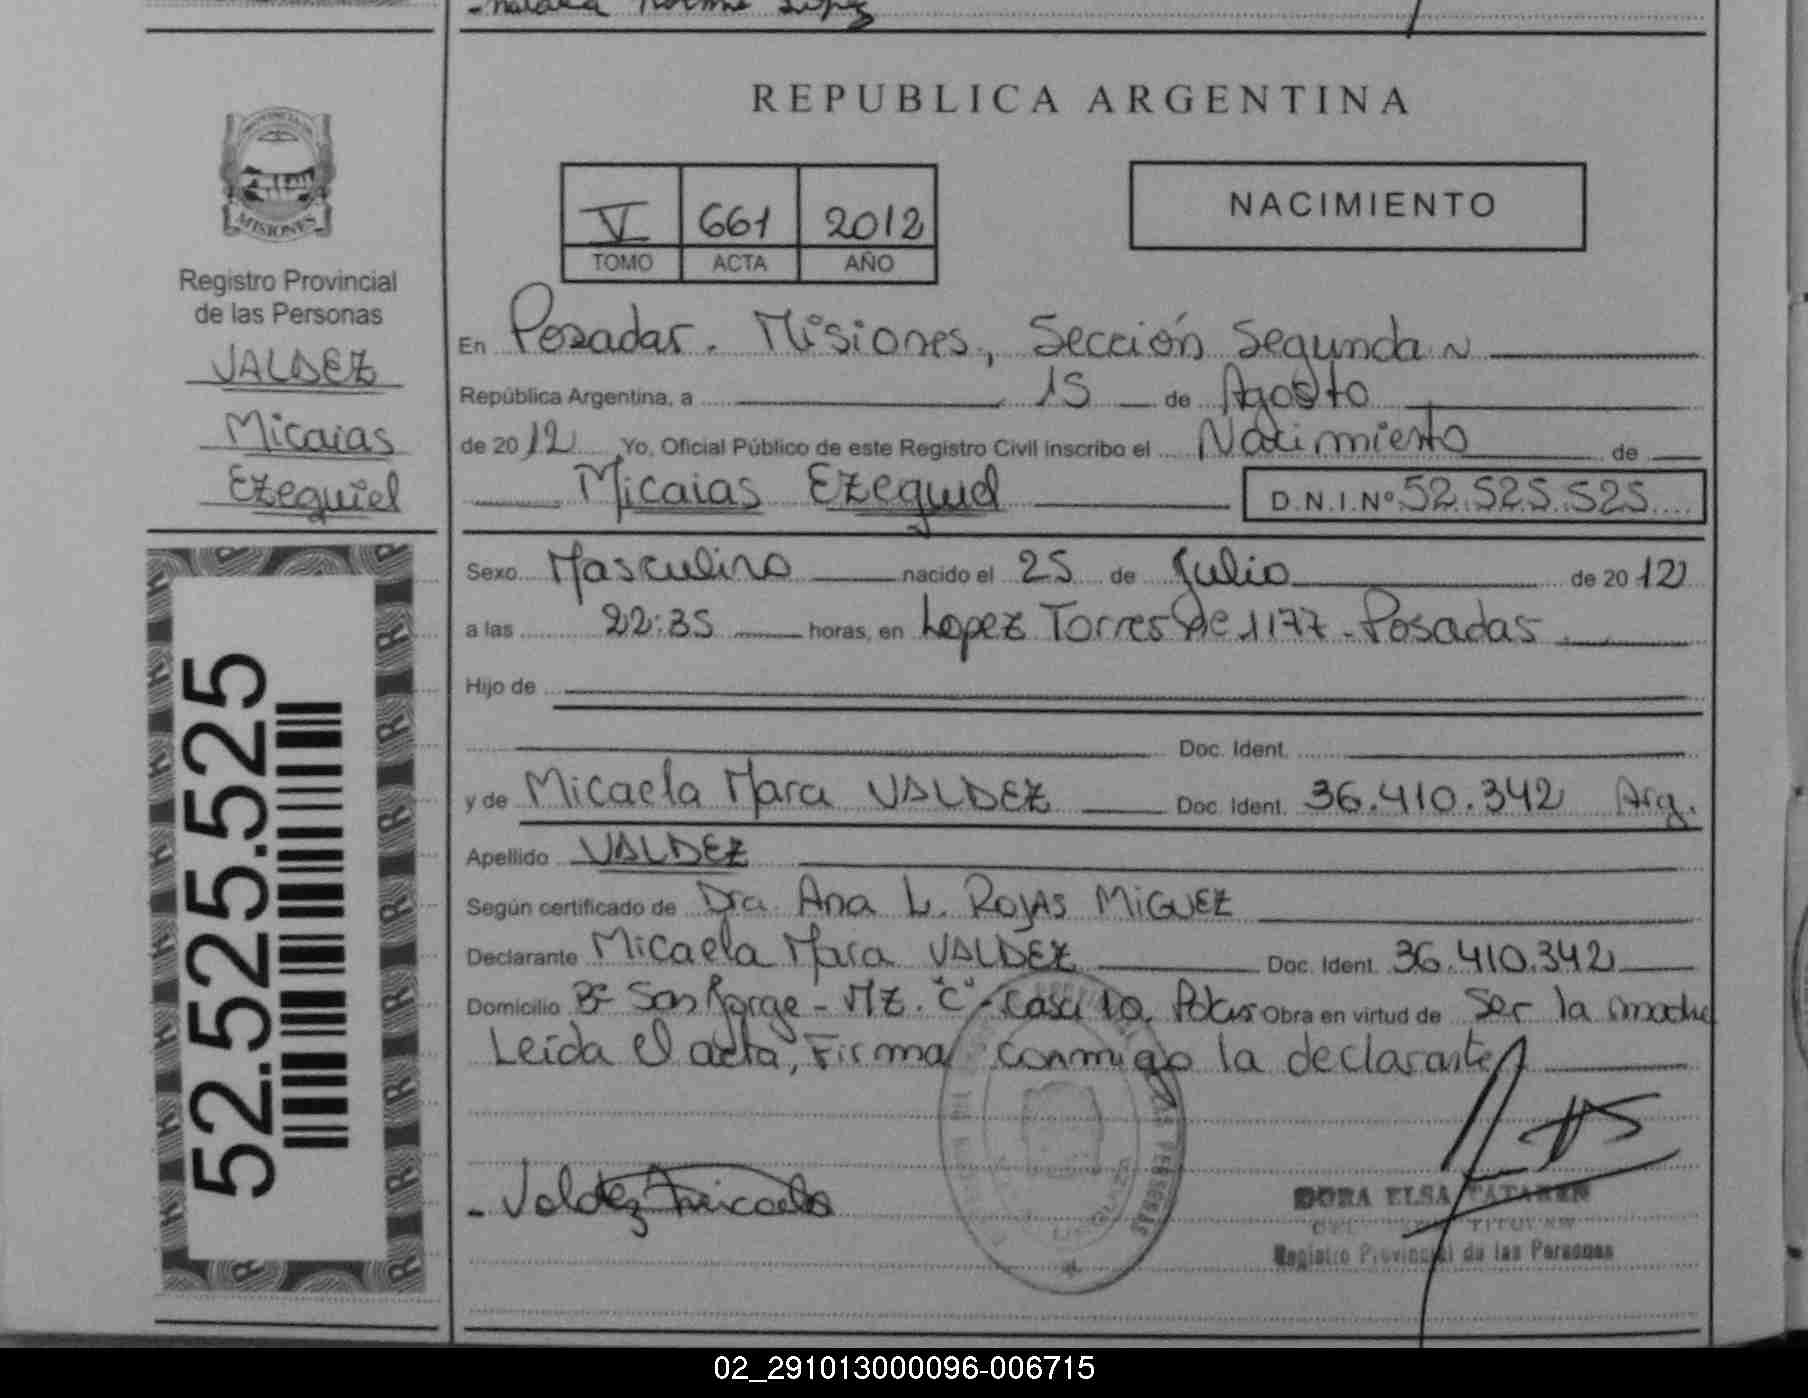 REPUBLICA ARGENTINA
MISIONES
Registro Provincial
de las Personas
VALDEZ
Micaias
Ezequiel
52.525.525
V 661 2012
TOMO ACTA AÑO
NACIMIENTO
En Posadas. Misiones, Sección Segunda
República Argentina, a 15 de Agosto
de 2012 Yo, Oficial Público de este Registro Civil inscribo el Nacimiento de
Micaias Ezequiel D.N.I.Nº 52.525.525
Sexo Masculino nacido el 25 de Julio de 2012
a las 22:35 horas, en Lopez Torres 1177 - Posadas
Hijo de
Doc. Ident.
y de Micaela Mara VALDEZ Doc. Ident. 36.410.342 Arg.
Apellido VALDEZ
Según certificado de Dra. Ana L. ROJAS MIGUEZ
Declarante Micaela Mara VALDEZ Doc. Ident. 36.410.342
Domicilio Bº San Jorge - MZ. "C" - Casa 10. Obra en virtud de Ser la madre
Leída el acta, Firma conmigo la declarante
- Valdez Micaela
DORA ELSA
TITULAR
Registro Provincial de las Personas
02_291013000096-006715